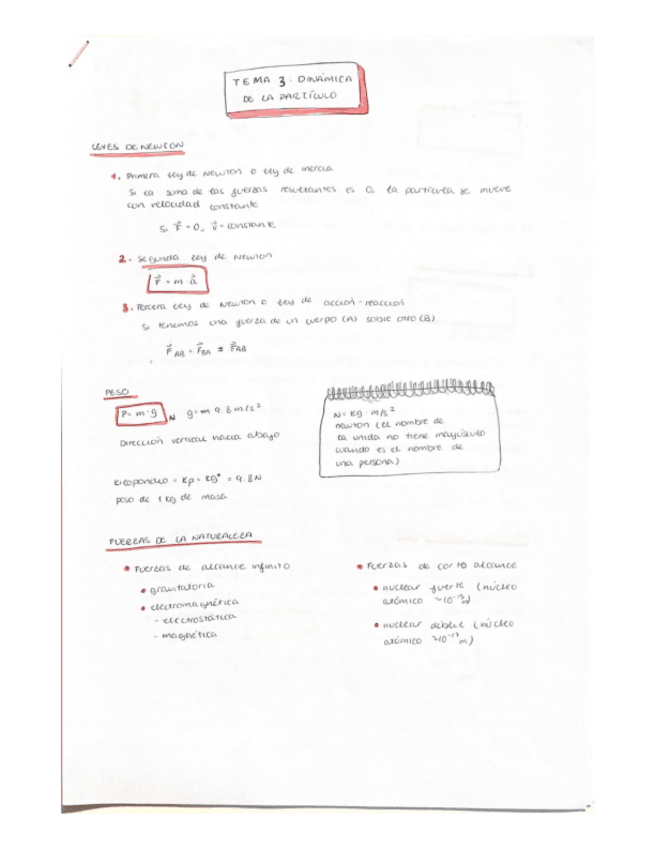 TEMA 3: DINÁMICA
DE LA PARTÍCULO
LEYES DE NEWTON
1. Primera ley de Newton o ley de inercia
Si la suma de las fuerzas resultantes es 0 la partícula se mueve
con velocidad constante
Si F⃗ = 0, v⃗ = constante
2. Segunda ley de Newton
F⃗ = m · a⃗
3. Tercera ley de Newton o ley de acción-reacción
Si tenemos una fuerza de un cuerpo (A) sobre otro (B)
PESO
P = m · g N g = 9.8 m/s²
Dirección vertical hacia abajo
N = kg · m/s²
newton (el nombre de
la unida no tiene mayúscula
cuando es el nombre de
una persona)
Kilopondio = Kp = Kg* = 9.8 N
peso de 1 kg de masa
FUERZAS DE LA NATURALEZA
• Fuerzas de alcance infinito
• gravitatoria
• electromagnética
- electrostática
- magnética
• Fuerzas de corto alcance
• nuclear fuerte (núcleo
atómico
• nuclear débil (núcleo
atómico